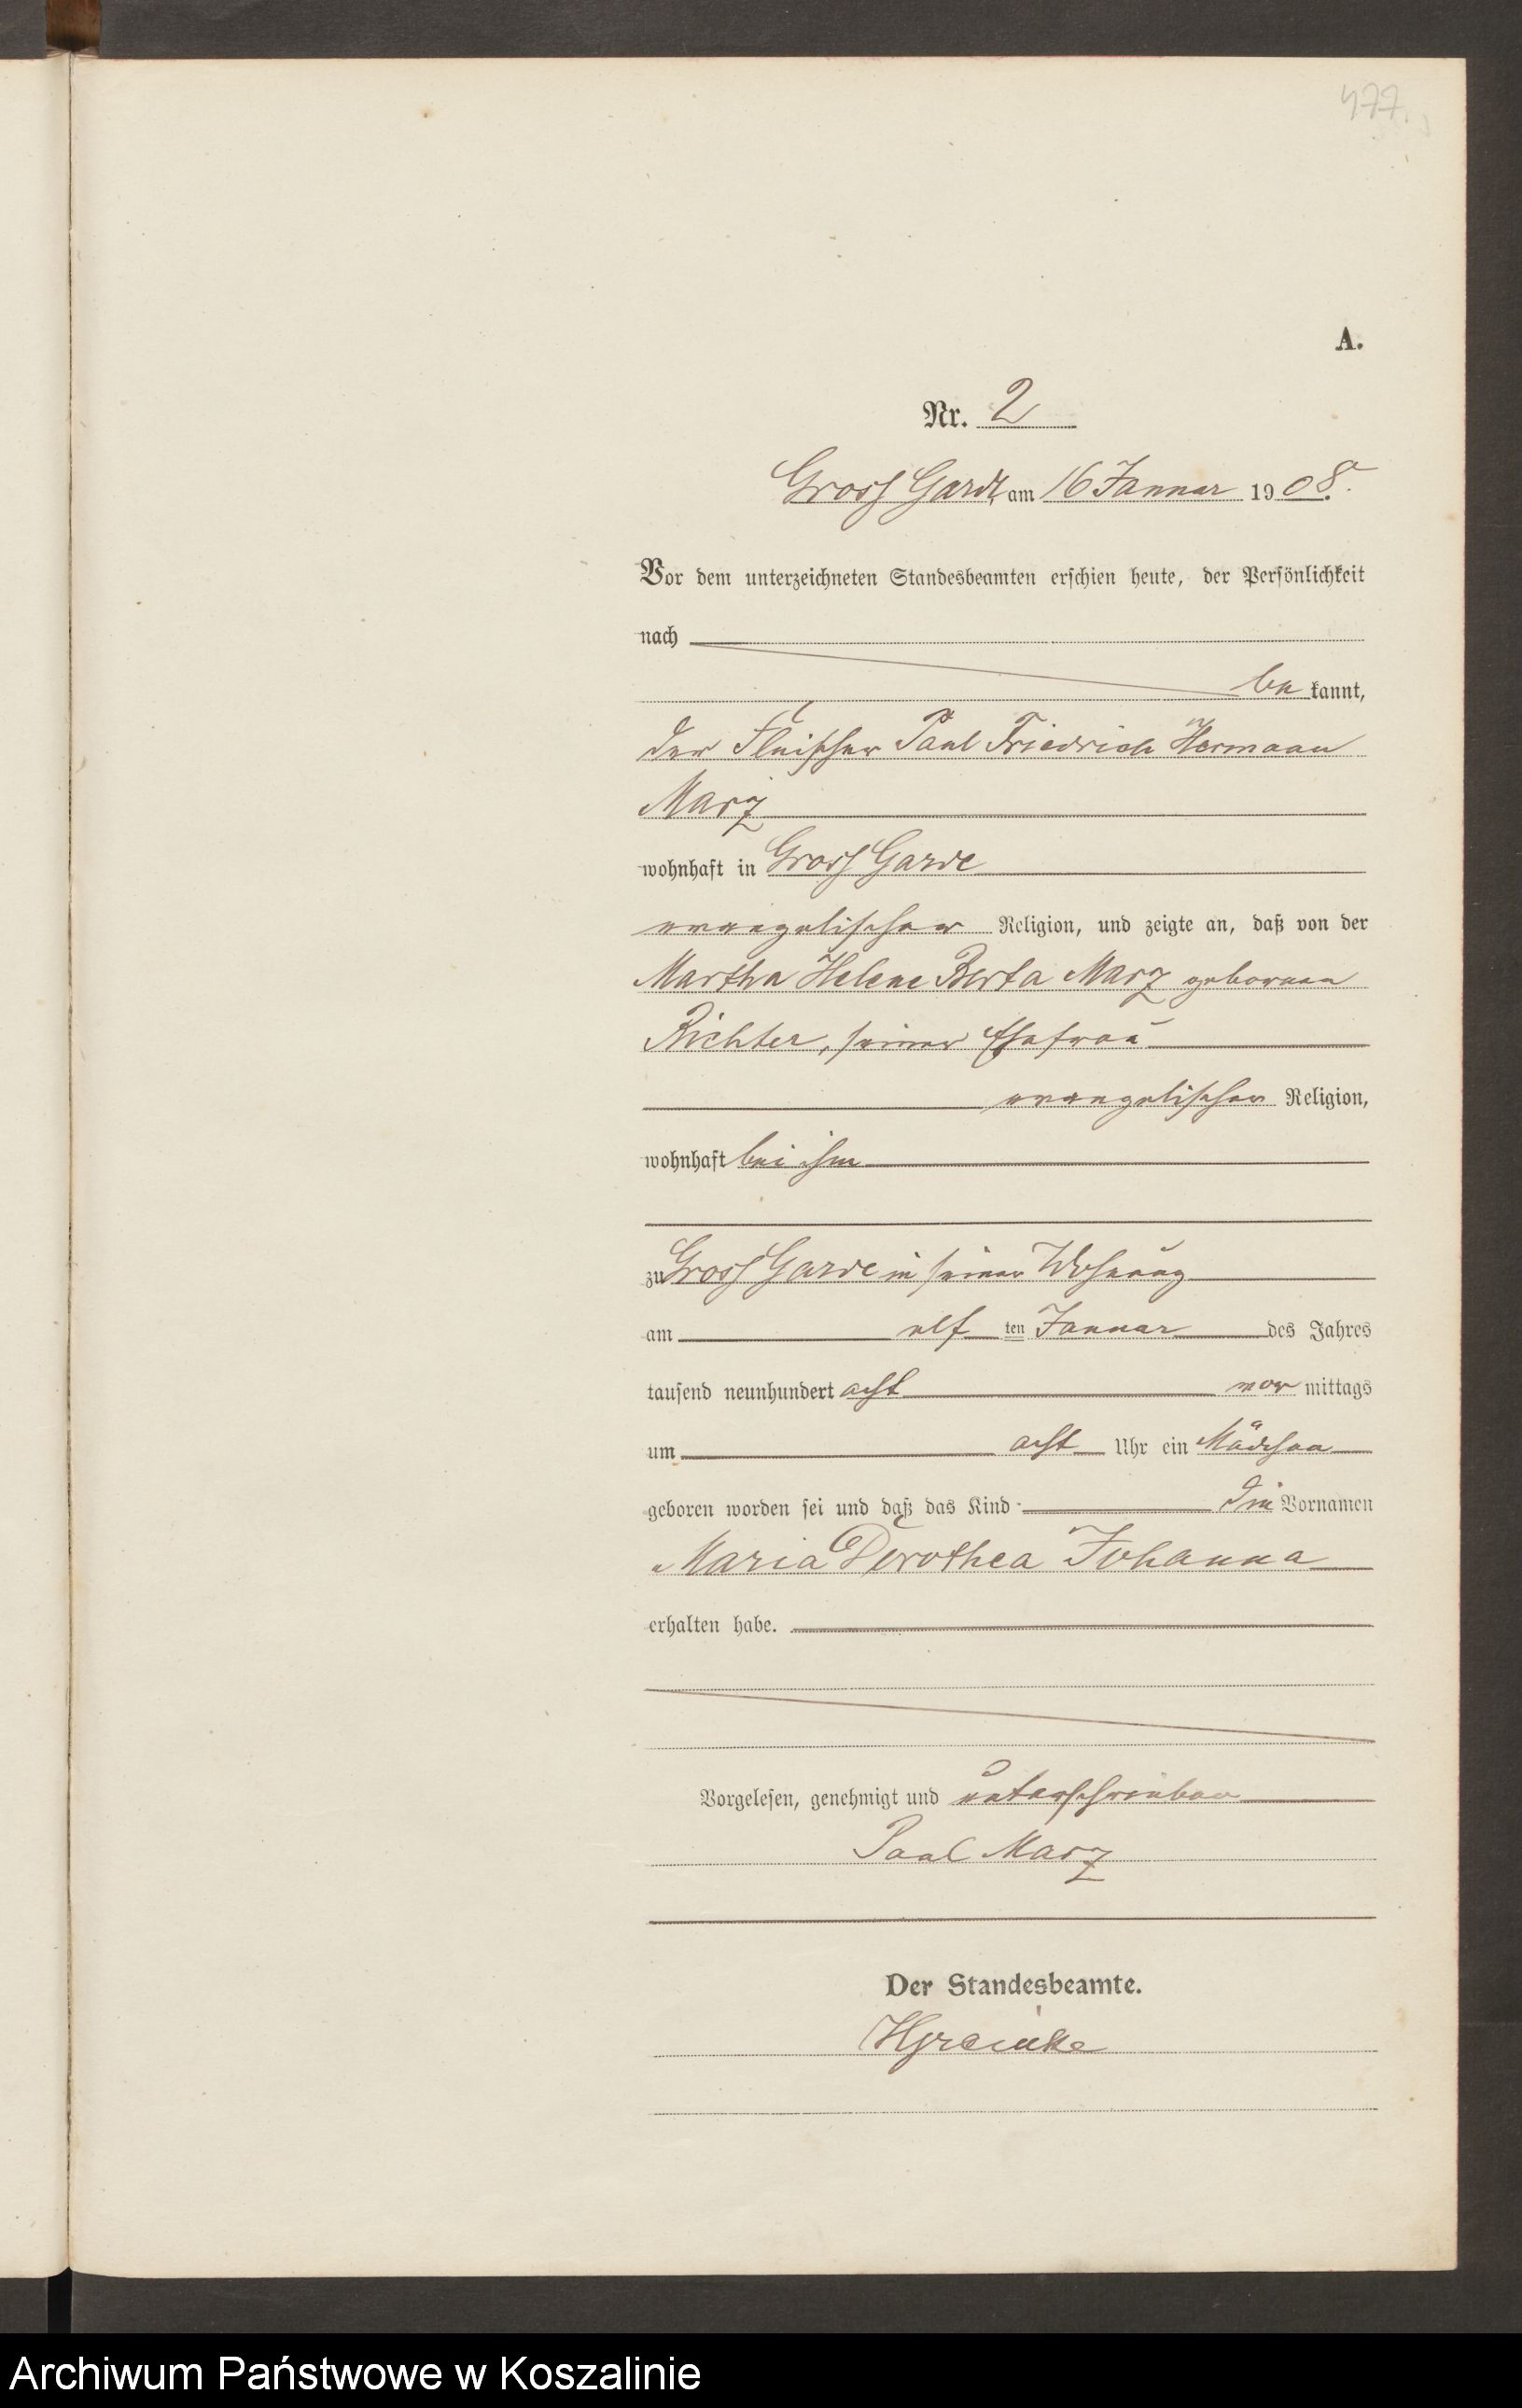 477.
A.
Nr. 2
Gross Garde am 16 Januar 1908.
Vor dem unterzeichneten Standesbeamten erschien heute, der Persönlichkeit
nach
be kannt,
der Fleischer Paul Friedrich Hermann
Marz
wohnhaft in Gross Garde
evangelischer Religion, und zeigte an, daß von der
Martha Helene Berta Marz geborenen
Richter, seiner Ehefrau
evangelischer Religion,
wohnhaft bei ihm
zu Gross Garde in seiner Wohnung
am elf ten Januar des Jahres
tausend neunhundert acht vor mittags
um acht Uhr ein Mädchen
geboren worden sei und daß das Kind die Vornamen
Maria Dorothea Johanna
erhalten habe.
Vorgelesen, genehmigt und unterschrieben
Paul Marz
Der Standesbeamte.
Archiwum Państwowe w Koszalinie